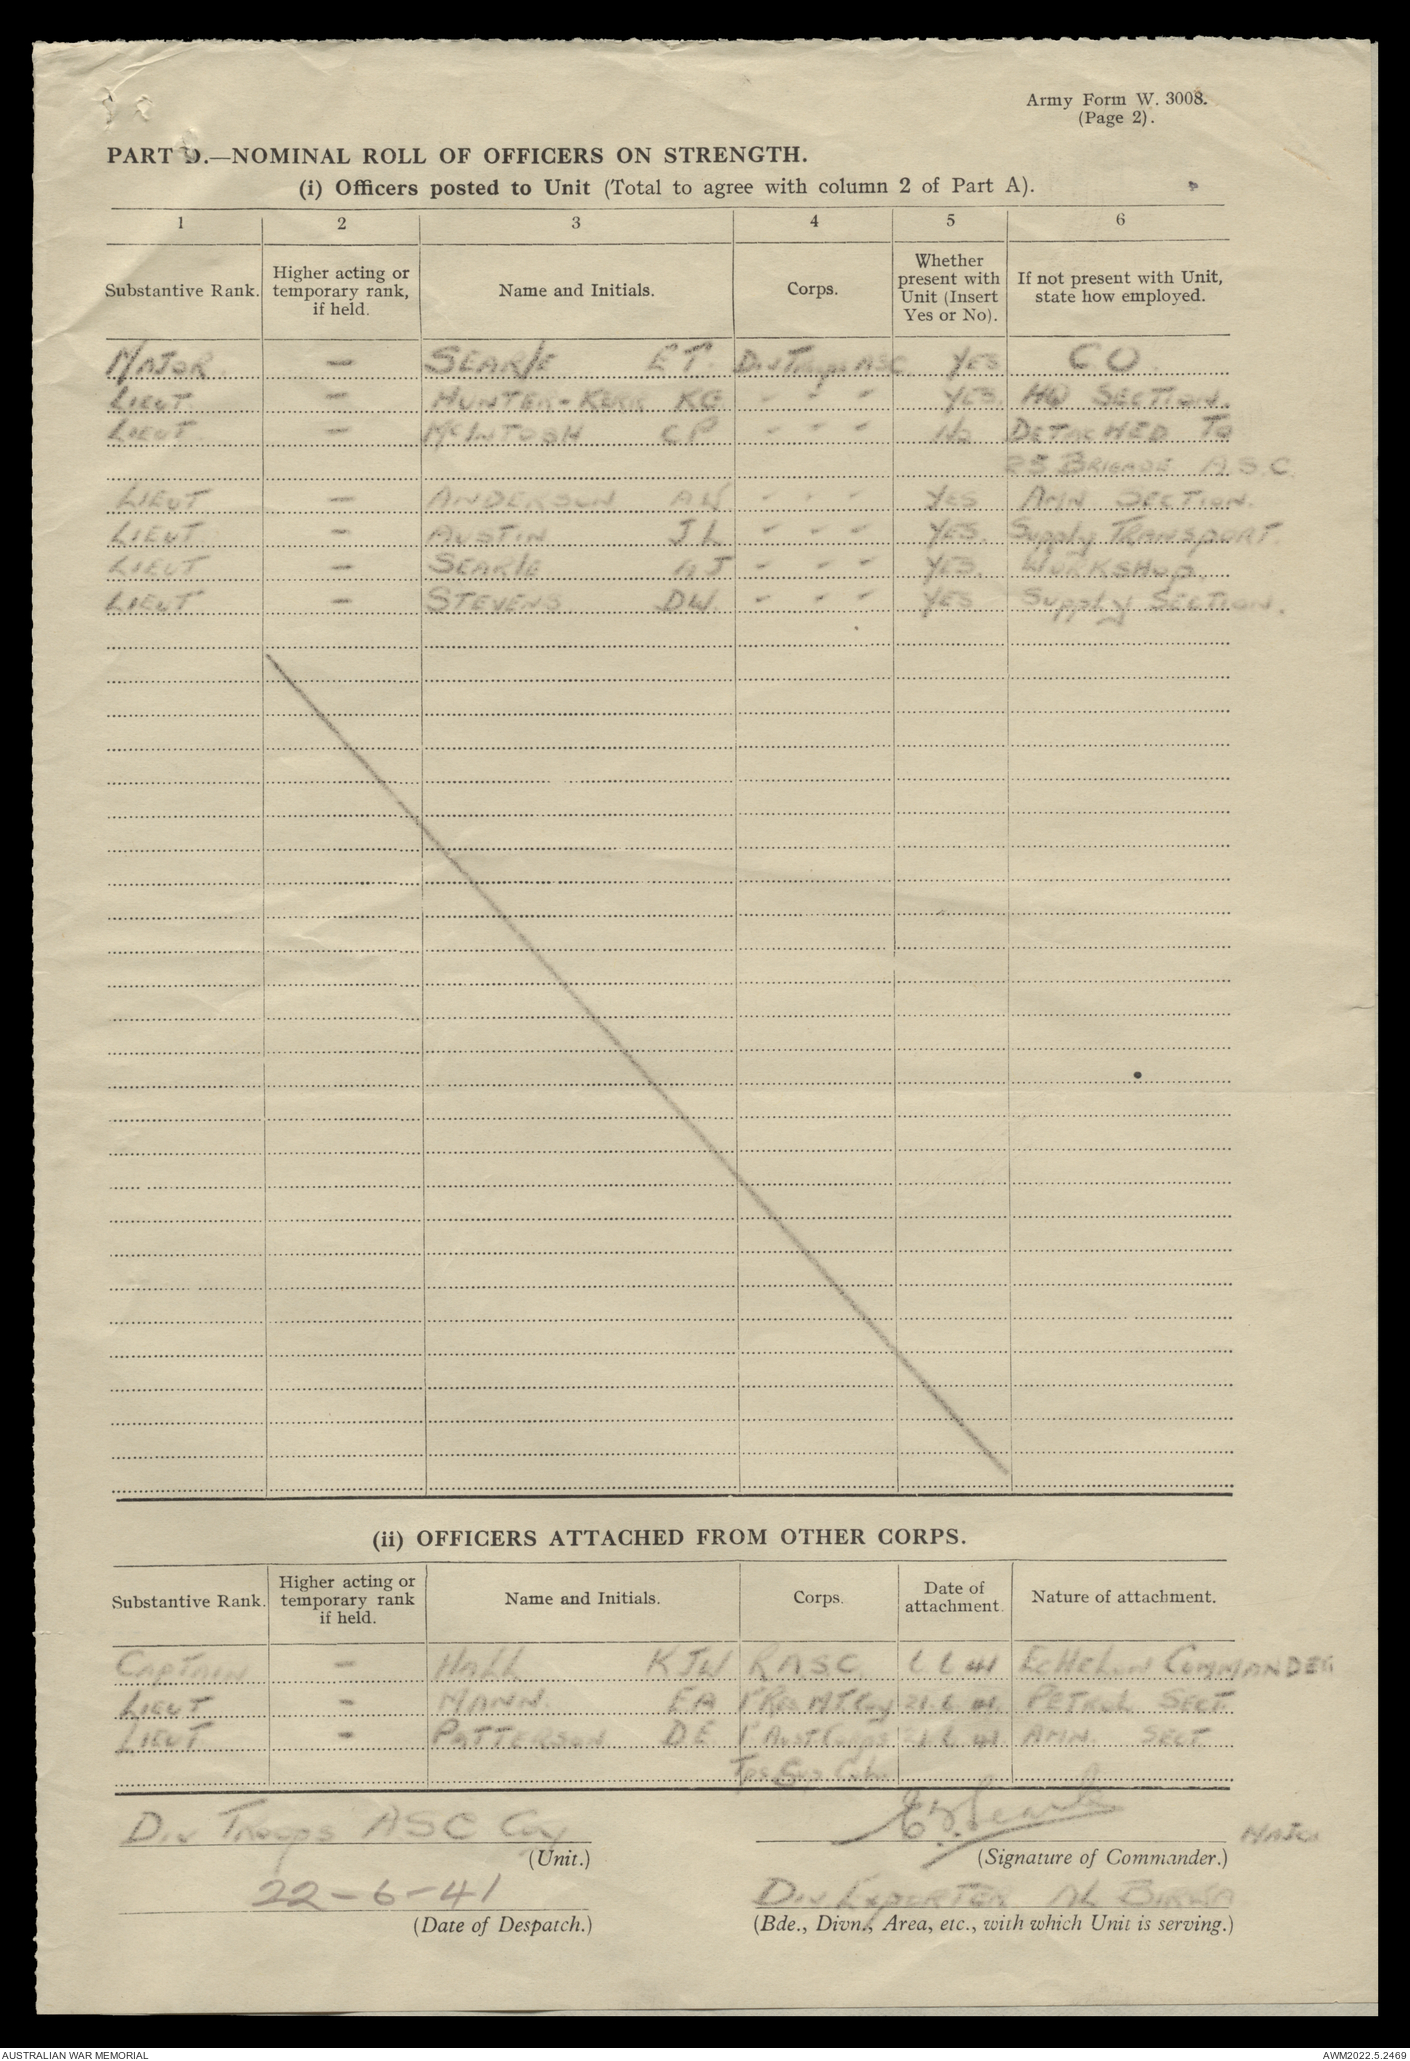 Army Form W. 3008.
(Page 2).
PART D.—NOMINAL ROLL OF OFFICERS ON STRENGTH.
(i) Officers posted to Unit (Total to agree with column 2 of Part A).
1 2 3 4 5 6
Substantive Rank. Higher acting or temporary rank, if held. Name and Initials. Corps. Whether present with Unit (Insert Yes or No). If not present with Unit, state how employed.
MAJOR. — SEARLE ET. Div Troops ASC. YES CO.
LIEUT. — HUNTER-KERR KG. " " " YES. HQ SECTION.
LIEUT. — McINTOSH CP " " " No DETACHED To
25 BRIGADE A.S.C.
LIEUT — ANDERSON AW. " " " YES AMN SECTION.
LIEUT. — AUSTIN JL " " " YES. Supply TRANSPORT.
LIEUT — SEARLE AJ " " " YES. WORKSHOP.
LIEUT — STEVENS DW. " " " YES Supply SECTION.
(ii) OFFICERS ATTACHED FROM OTHER CORPS.
Substantive Rank. Higher acting or temporary rank if held. Name and Initials. Corps. Date of attachment. Nature of attachment.
CAPTAIN — HALL KJW RASC 41 ECHELON COMMANDER
LIEUT — MANN. EA 1 Res MT Coy 21.6.41 PETROL SECT.
LIEUT. — PATTERSON DE. 1 Aust Corps 21.6.41 AMN. SECT
Tps Sup Coln
Div Troops ASC Coy
(Unit.)
E.T. Searle MAJOR
(Signature of Commander.)
22-6-41
(Date of Despatch.)
Div EXPORTER AL BIRWA
(Bde., Divn., Area, etc., with which Unit is serving.)
AUSTRALIAN WAR MEMORIAL
AWM2022.5.2469